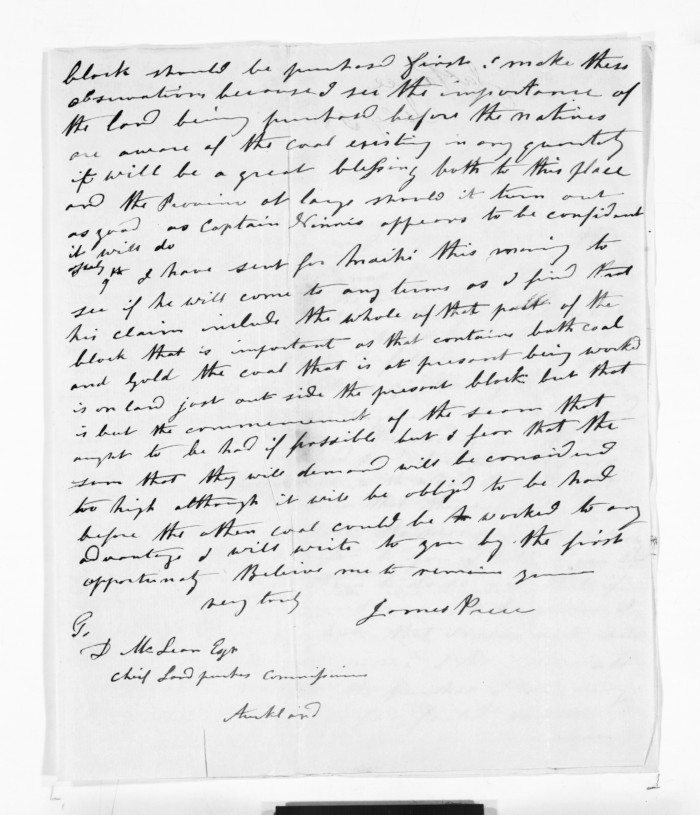 block should be purchased first I make these
observations because I see the importance of
the land being purchased before the natives
are aware of the coal existing in any quantity
it will be a great blessing both to this place
and the Province at large should it turn out
as good as Captain Ninnis appears to be confident
it will do
July 9th I have sent for Maihi this morning to
see if he will come to any terms as I find that
his claim include the whole of that part of the
block that is important as that contains both coal
and Gold the coal that is at present being worked
is on land just out side the present block but that
is but the commencement of the seam that
ought to be had if possible but I fear that the
sum that they will demand will be considered
too high although it will be obliged to be had
before the other coal could be worked to any
advantage I will write to you by the first
opportunity Believe me to remain yours
very truly
James Preece
D McLean Esqr
Chief Land purches Commissioner
Auckland